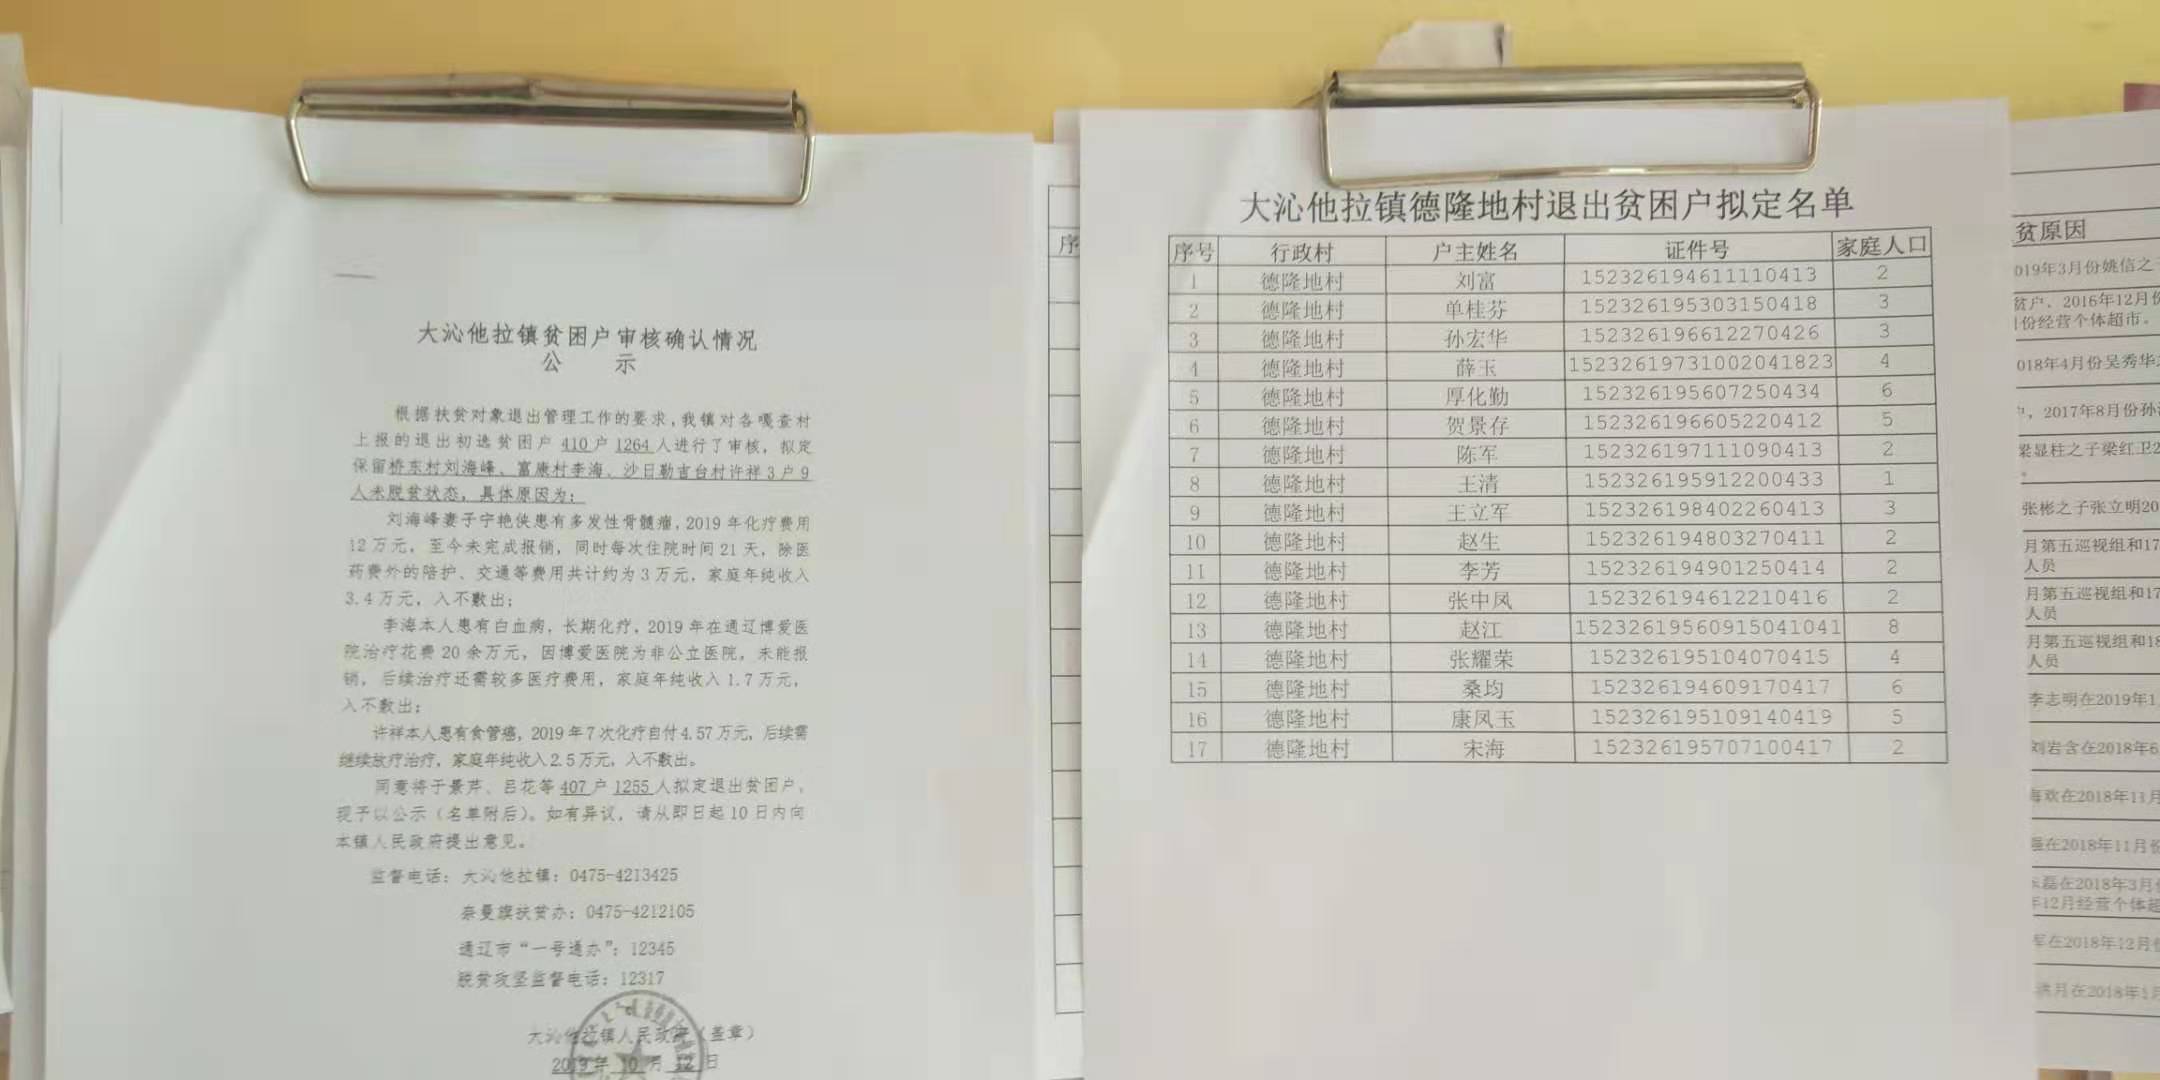 大沁他拉镇贫困户审核确认情况
公 示
根据扶贫对象退出管理工作的要求,我镇对各嘎查村
上报的退出初选贫困户 410 户 1264 人进行了审核,拟定
保留桥东村刘海峰、富康村李海、沙日勒吉台村许祥3户9
人未脱贫状态,具体原因为:
刘海峰妻子宁艳侠患有多发性骨髓瘤,2019年化疗费用
12万元,至今未完成报销,同时每次住院时间21天,除医
药费外的陪护、交通等费用共计约为3万元,家庭年纯收入
3.4万元,入不敷出;
李海本人患有白血病,长期化疗,2019年在通辽博爱医
院治疗花费20余万元,因博爱医院为非公立医院,未能报
销,后续治疗还需较多医疗费用,家庭年纯收入1.7万元,
入不敷出;
许祥本人患有食管癌,2019年7次化疗自付4.57万元,后续需
继续放疗治疗,家庭年纯收入2.5万元,入不敷出。
同意将于景芹、吕花等407户1255人拟定退出贫困户,
现予以公示(名单附后)。如有异议,请从即日起10日内向
本镇人民政府提出意见。
监督电话:大沁他拉镇:0475-4213425
奈曼旗扶贫办:0475-4212105
通辽市“一号通办”:12345
脱贫攻坚监督电话:12317
大沁他拉镇人民政府(盖章)
2019年 10 月 12 日
序
大沁他拉镇德隆地村退出贫困户拟定名单
序号 行政村 户主姓名 证件号 家庭人口
1 德隆地村 刘富 152326194611110413 2
2 德隆地村 单桂芬 152326195303150418 3
3 德隆地村 孙宏华 152326196612270426 3
4 德隆地村 薛玉 15232619731002041823 4
5 德隆地村 厚化勤 152326195607250434 6
6 德隆地村 贺景存 152326196605220412 5
7 德隆地村 陈军 152326197111090413 2
8 德隆地村 王清 152326195912200433 1
9 德隆地村 王立军 152326198402260413 3
10 德隆地村 赵生 152326194803270411 2
11 德隆地村 李芳 152326194901250414 2
12 德隆地村 张中凤 152326194612210416 2
13 德隆地村 赵江 15232619560915041041 8
14 德隆地村 张耀荣 152326195104070415 4
15 德隆地村 桑均 152326194609170417 6
16 德隆地村 康凤玉 152326195109140419 5
17 德隆地村 宋海 152326195707100417 2
贫原因
019年3月份姚信之
贫户,2016年12月份
份经营个体超市。
018年4月份吴秀华
,2017年8月份孙
梁显柱之子梁红卫2
张彬之子张立明20
月第五巡视组和17
人员
月第五巡视组和17
人员
月第五巡视组和18
人员
李志明在2019年1
刘岩含在2018年6
海欢在2018年11月
强在2018年11月份
磊在2018年3月份
年12月经营个体超
军在2018年12月份
洪月在2018年1月